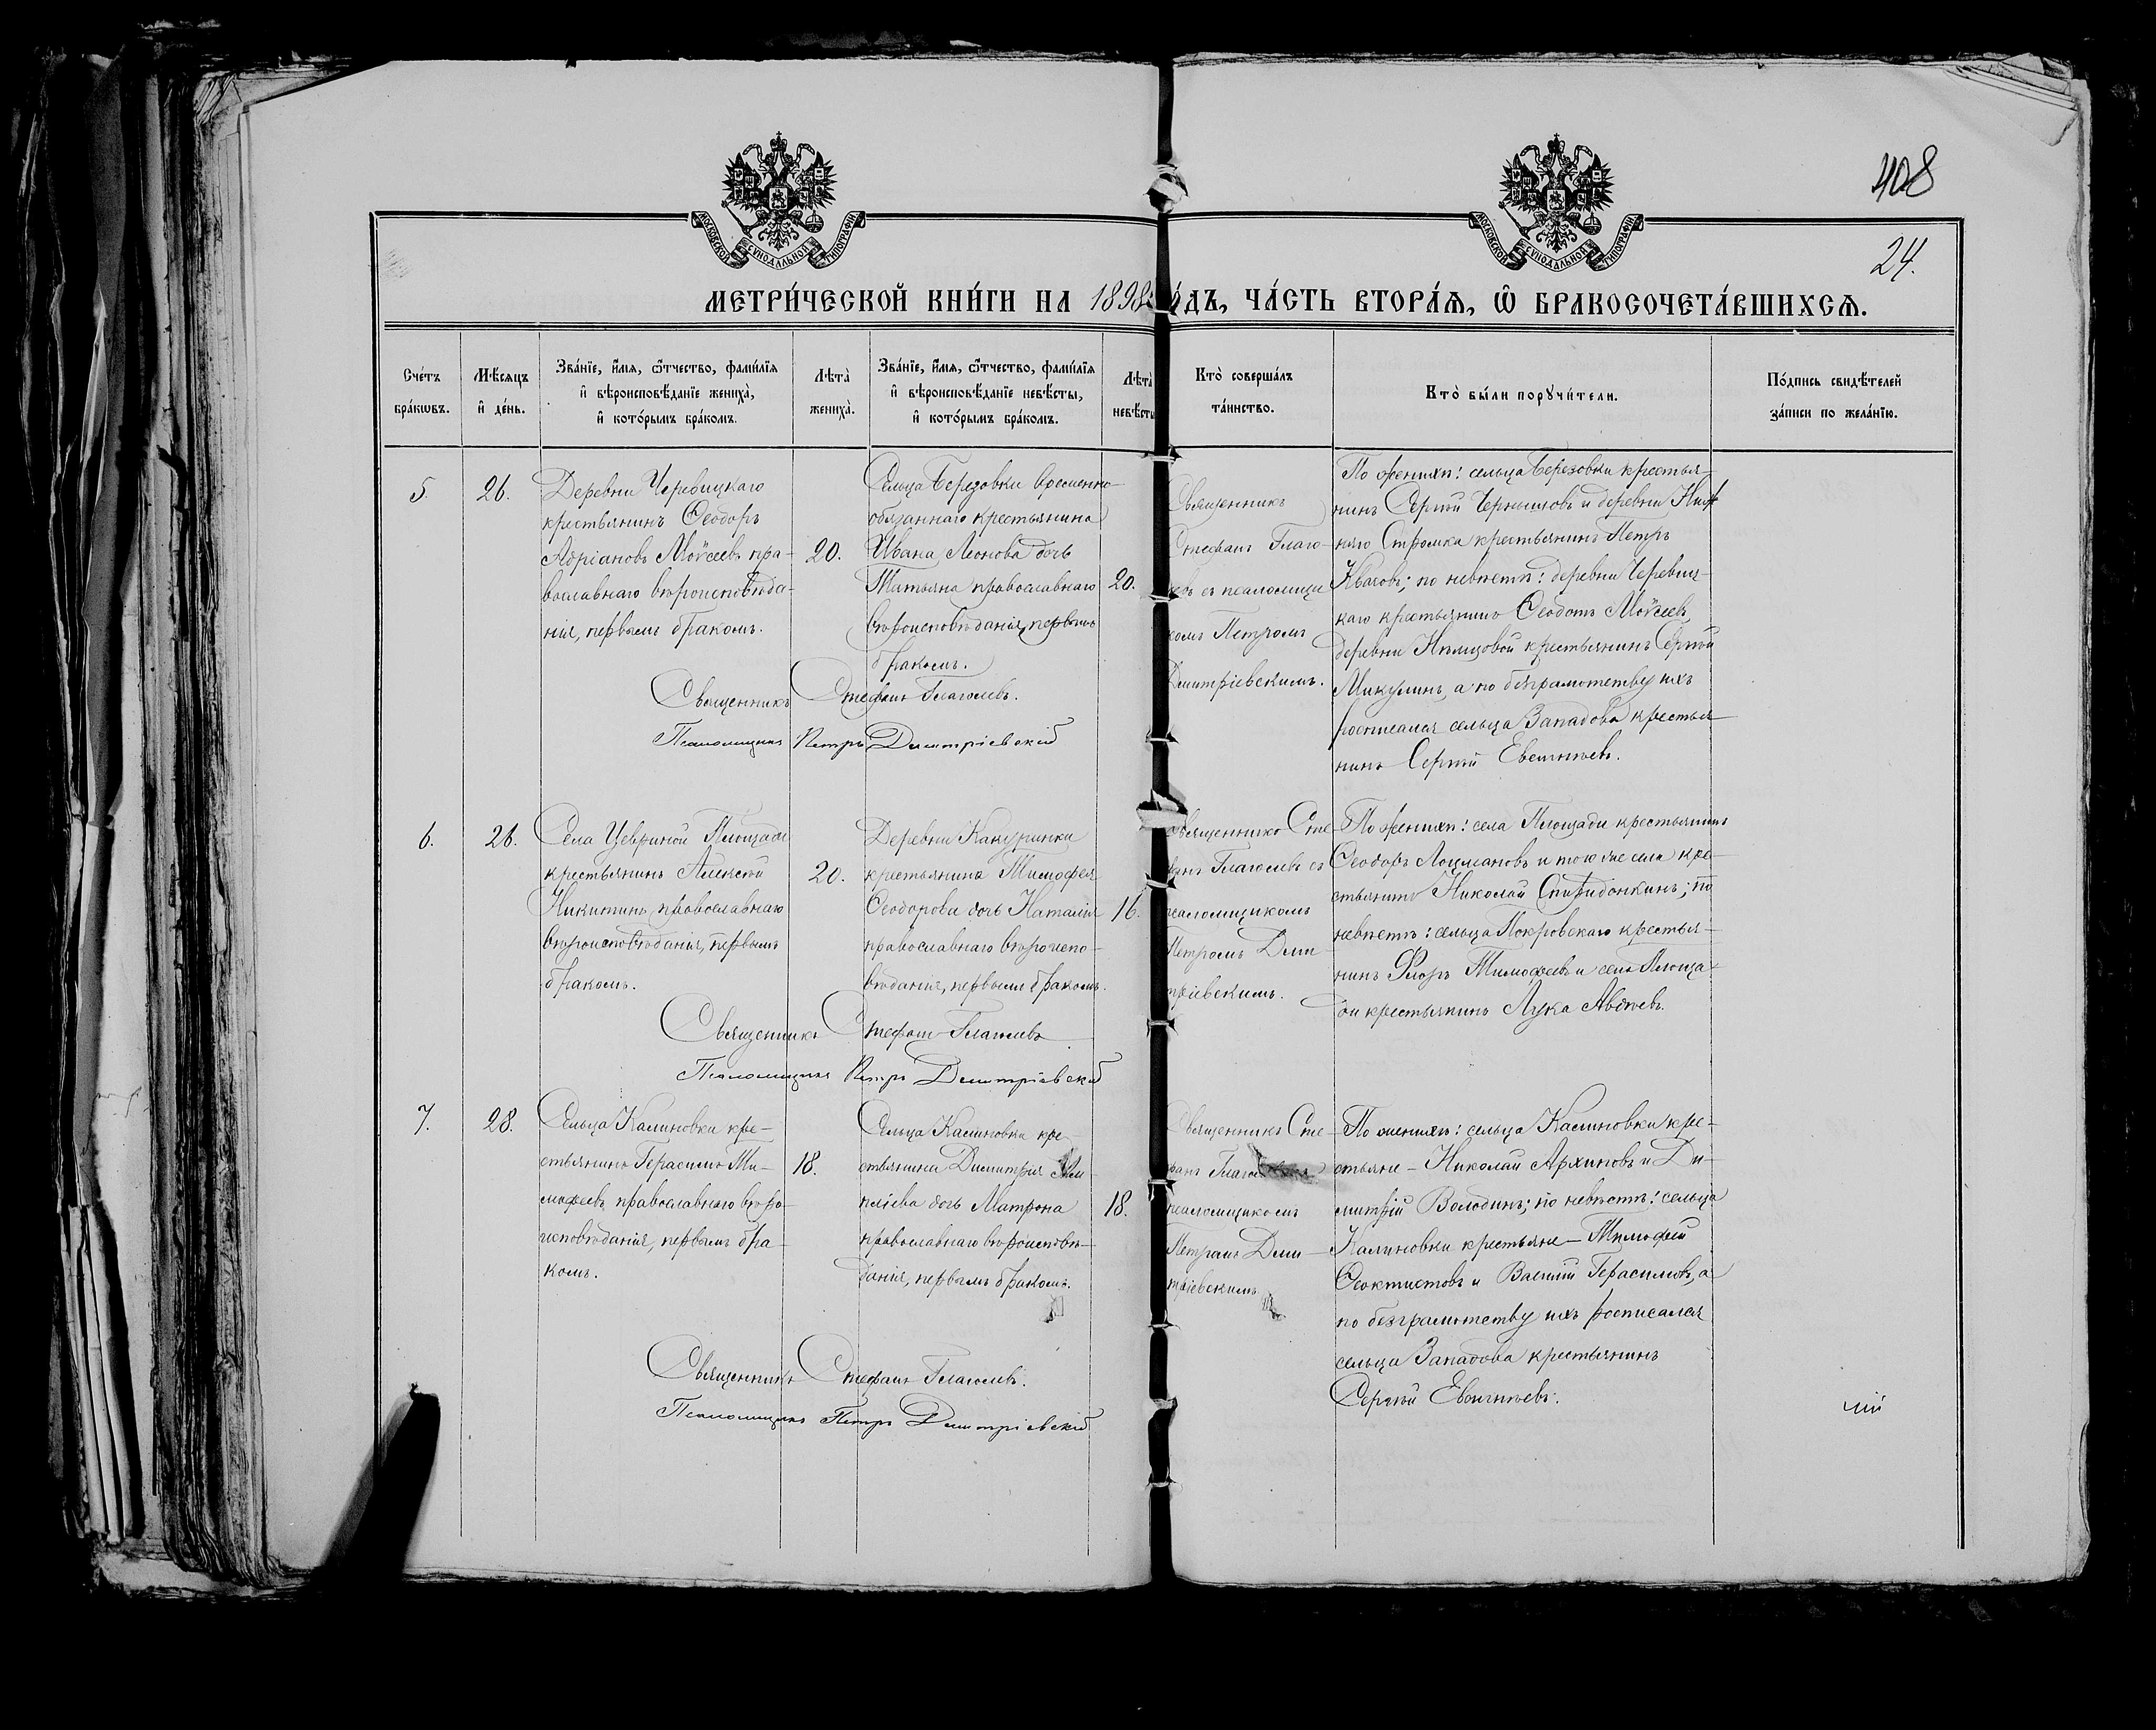 408
24.
МОСКОВСКОЙ СѴНОДАЛЬНОЙ ТИПОГРАФІИ
МОСКОВСКОЙ СѴНОДАЛЬНОЙ ТИПОГРАФІИ
МЕТРИ́ЧЕСКОЙ КНИ́ГИ НА 1898 ГО́ДЪ, ЧА́СТЬ ВТОРА́Я, Ѡ҆ БРАКОСОЧЕТА́ВШИХСЯ.
Сче́тъ
бра́кѡвъ.
Мѣ́сяцъ
и҆ де́нь.
Зва́нїе, и҆́мя, ѻ҆́тчество, фами́лїя
и҆ вѣроисповѣ́данїе жениха̀,
и҆ кото́рымъ бра́комъ.
Лѣ́та̀
жениха̀.
Зва́нїе, и҆́мя, ѻ҆́тчество, фами́лїя
и҆ вѣроисповѣ́данїе невѣ́сты,
и҆ кото́рымъ бра́комъ.
Лѣ́та̀
невѣ́сты
Кто̀ соверша́лъ
та́инство.
Кто̀ бы́ли порꙋчи́тели.
По́дпись свидѣ́телей
за́писи по жела́нїю.
5.
26.
Деревни Черевицкаго
крестьянинъ Ѳеодоръ
Адріановъ Моѵсеевъ пра-
вославнаго вѣроисповѣда-
нія, первымъ бракомъ.
20.
Сельца Березовки временно-
обязаннаго крестьянина
Ивана Леонова дочь
Татьяна православнаго
вѣроисповѣданія, первымъ
бракомъ.
20.
Священникъ
Стефанъ Глаго-
левъ съ псаломщи
комъ Петромъ
Димитріевскимъ.
По женихѣ: сельца Березовки крестья-
нинъ Сергѣй Чернышовъ и деревни Ниж
няго Стромка крестьянинъ Петръ
Квасовъ; по невѣстѣ: деревни Черевиц-
каго крестьянинъ Ѳеодотъ Моѵсеевъ,
деревни Нѣмцовой крестьянинъ Сергѣй
Микулинъ, а по безграмотству ихъ
росписался сельца Западова крестья-
нинъ Сергѣй Евстигнѣевъ.
Священникъ Стефанъ Глаголевъ.
Псаломщикъ Петръ Димитріевскій
6.
26.
Села Цевриной Площади
крестьянинъ Алексѣй
Никитинъ, православнаго
вѣроисповѣданія, первымъ
бракомъ.
20.
Деревни Какуринки
крестьянина Тимофея
Ѳеодорова дочь Наталія
православнаго вѣроиспо-
вѣданія, первымъ бракомъ.
16.
Священникъ Сте-
фанъ Глаголевъ съ
псаломщикомъ
Петромъ Дими
тріевскимъ.
По женихѣ: села Площади крестьянинъ
Ѳеодоръ Лоцмановъ и того же села кре-
стьянинъ Николай Спиридонкинъ; по
невѣстѣ: сельца Покровскаго крестья-
нинъ Флоръ Тимофеевъ и села Площа-
ди крестьянинъ Лука Авдѣевъ.
Священникъ Стефанъ Глаголевъ
Псаломщикъ Петръ Димитріевскій
7.
28.
Сельца Калиновки кре-
стьянинъ Герасимъ Ти-
мофеевъ православнаго вѣро-
исповѣданія, первымъ бра-
комъ.
18.
Сельца Калиновки кре-
стьянина Димитрія
дочь Матрона
православнаго вѣроисповѣ-
данія, первымъ бракомъ.
18.
Священникъ Сте-
фанъ
псаломщикомъ
Петромъ Дими-
тріевскимъ
По женихѣ: сельца Калиновки кре-
стьяне - Николай Архиповъ и Ди-
митрій Володинъ; по невѣстѣ: сельца
Калиновки крестьяне - Тимофей
Ѳеоктистовъ и Василій Герасимовъ, а
по безграмотству ихъ росписался
сельца Западова крестьянинъ
Сергѣй Евстигнѣевъ.
Священникъ Стефанъ Глаголевъ.
Псаломщикъ Петръ Димитріевскій